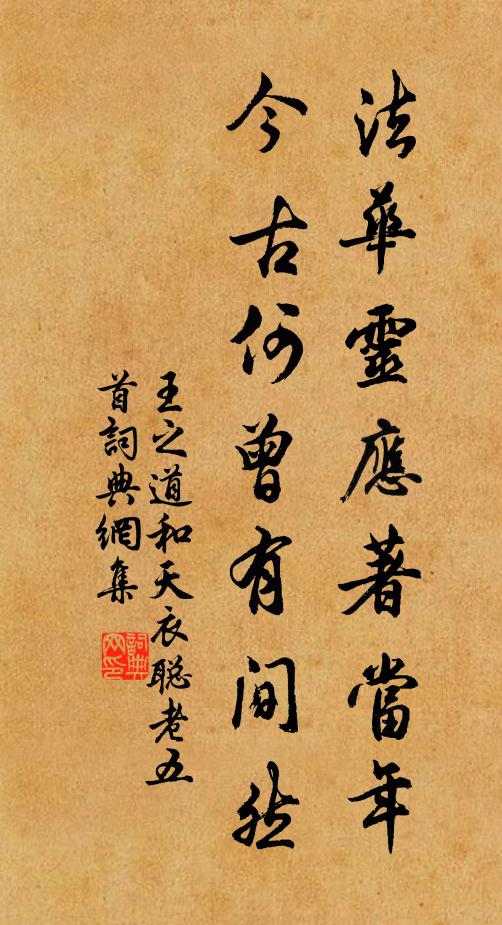 法華靈應著當年
今古何曾有間然
王之道和天衣聰老五
首詞典網集
詞典網印